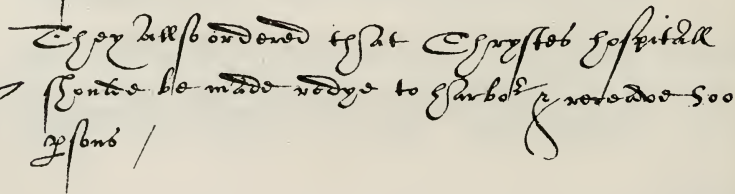 They allso ordered that Chrystes hospitall
shoulde be made redye to harbor & receave 500
ꝑsons /